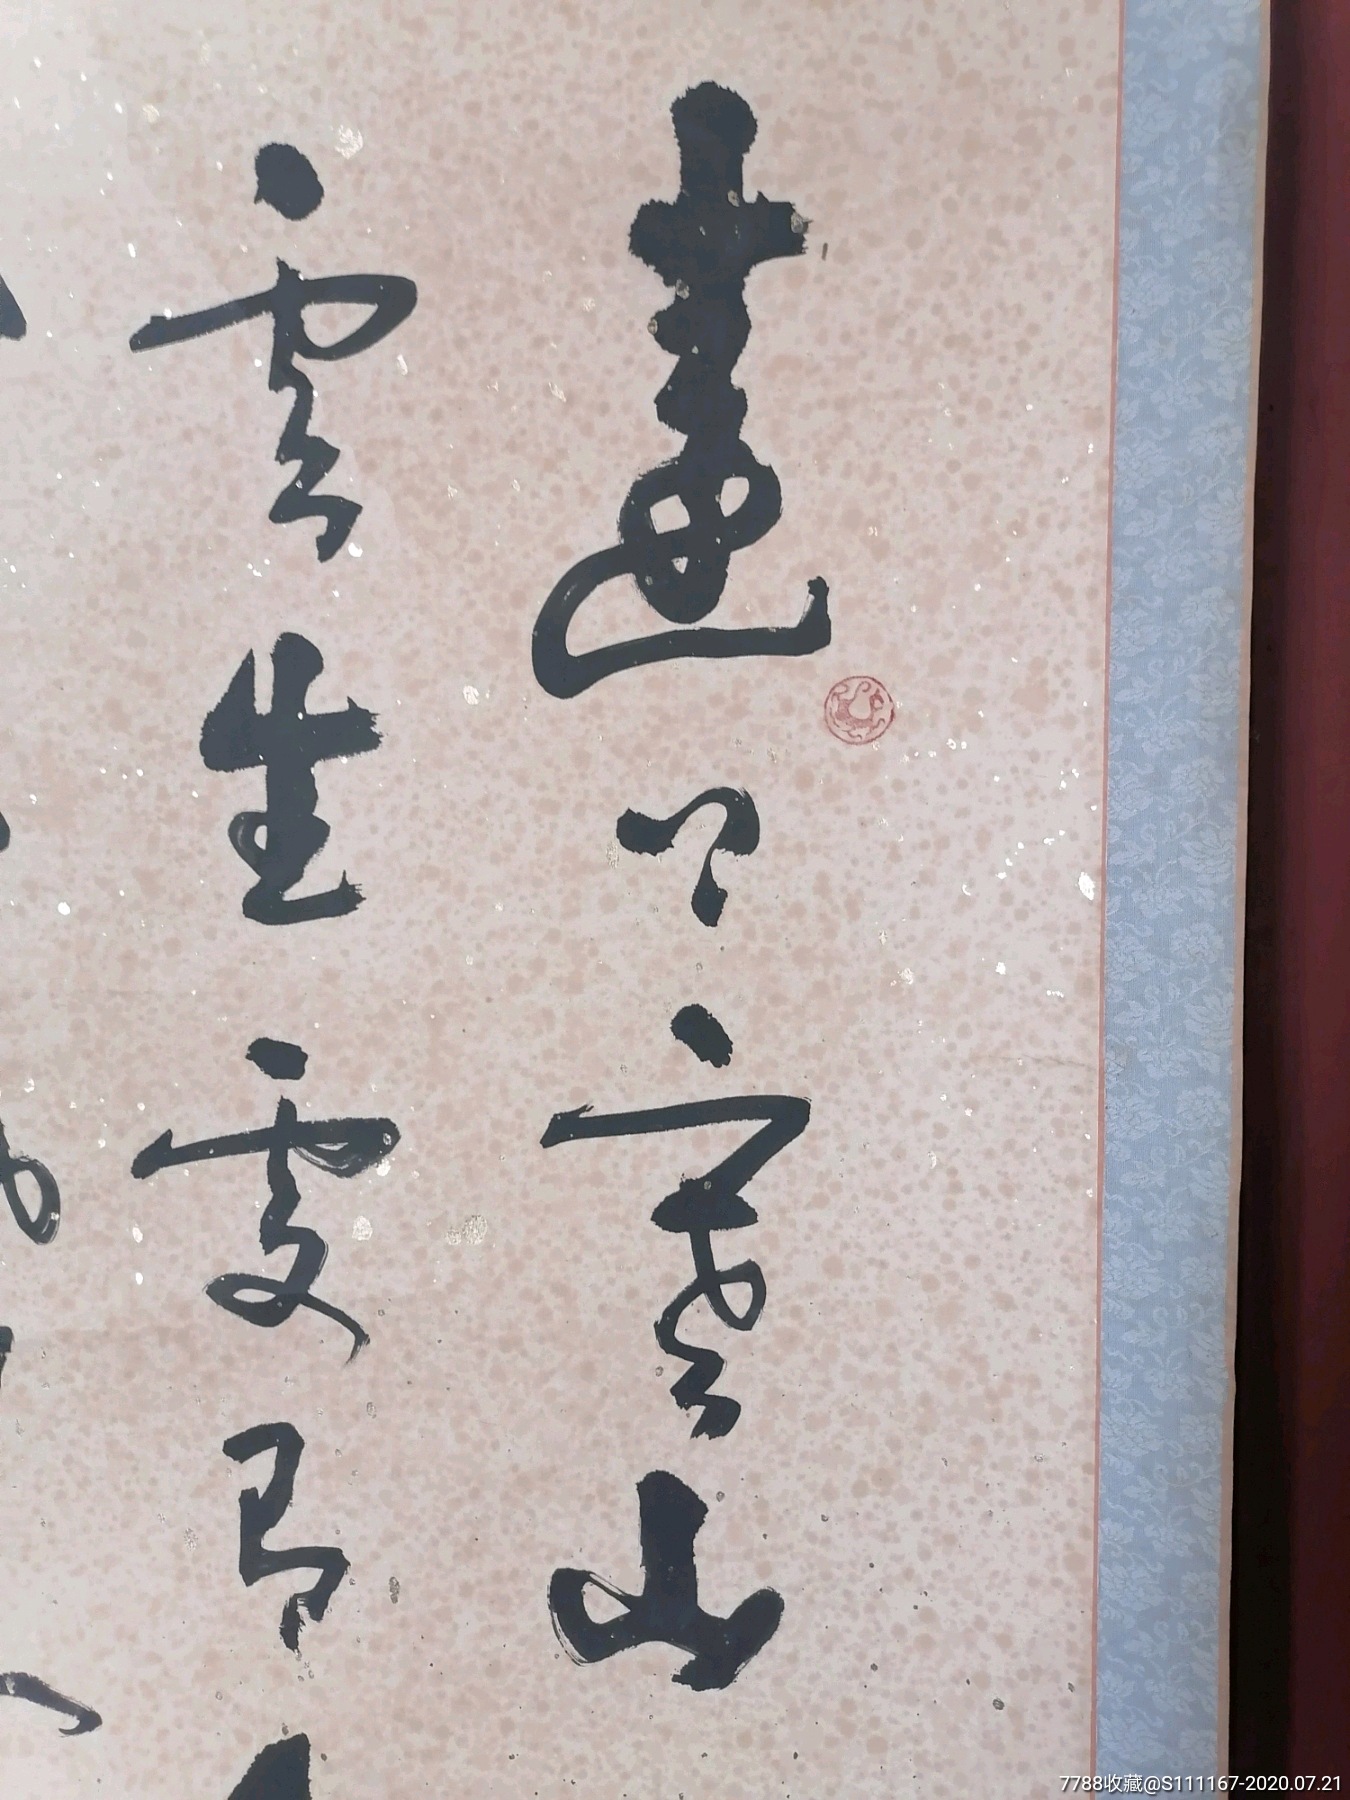 遠上寒山
雲生處有
7788收藏@S111167-2020.07.21